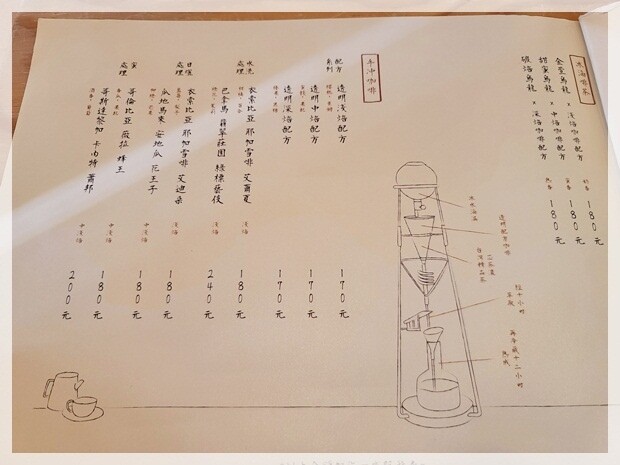 冰滴咖啡茶
金萱烏龍 x 淺焙咖啡配方
180元
甜蜜烏龍 x 中焙咖啡配方
180元
碳焙烏龍 x 深焙咖啡配方
180元
冰水滴漏
透明配方咖啡
台灣精品茶
手沖咖啡
配方系列
透明淺焙配方
170元
透明中焙配方
170元
透明深焙配方
170元
水洗處理
衣索比亞 耶加雪啡 艾爾夏
淺焙
180元
巴拿馬 翡翠莊園 綠標藝伎
淺焙
240元
日曬處理
衣索比亞 耶加雪啡 艾迪朵
淺焙
180元
瓜地馬來 安地瓜 花王子
中淺焙
180元
蜜處理
哥倫比亞 薇拉 蜂王
中淺焙
180元
哥斯達黎加 卡內特 蕭邦
中淺焙
200元